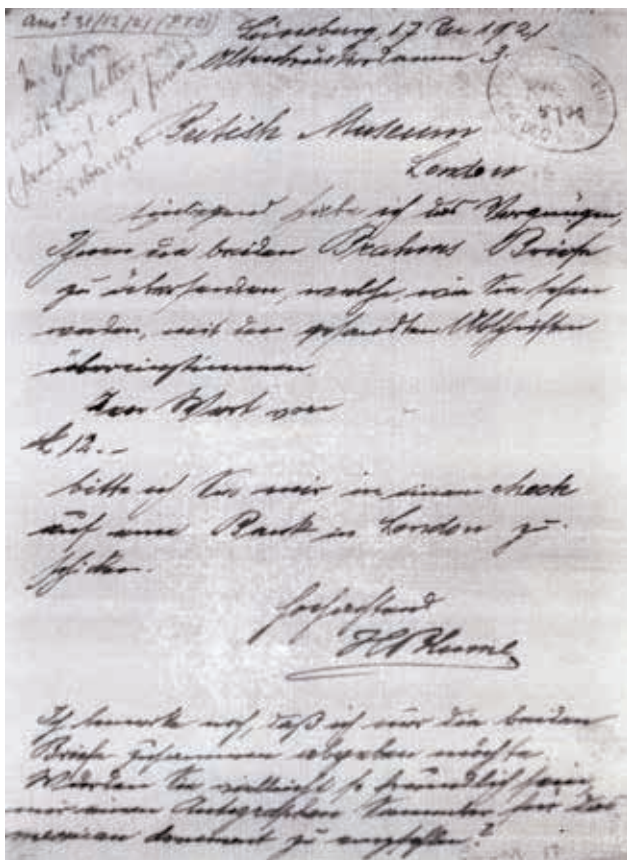 ansd 31/12/21 (PTO)
Lüneburg, 17 Dez 1921
with two letters
British Museum
London
Einliegend habe ich das Vergnügen,
Ihnen die beiden Brahms Briefe
zu übersenden, welche, wie Sie sehen
werden, mit den gesandten Abschriften
übereinstimmen.
Den Wert von
12.–
bitte ich Sie mir in einem check
auf eine Bank in London zu
schicken.
Hochachtend
H Blume
Ich bemerke noch, daß ich nur die beiden
Briefe zusammen abgeben möchte.
Würden Sie vielleicht so freundlich sein,
mir einen Autographen Sammler für das
document zu empfehlen?